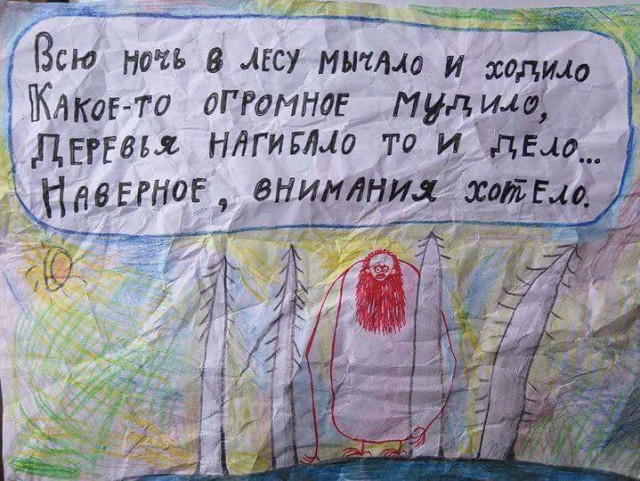 Всю ночь в лесу мычало и ходило
Какое-то огромное мудило,
Деревья нагибало то и дело...
Наверное, внимания хотело.